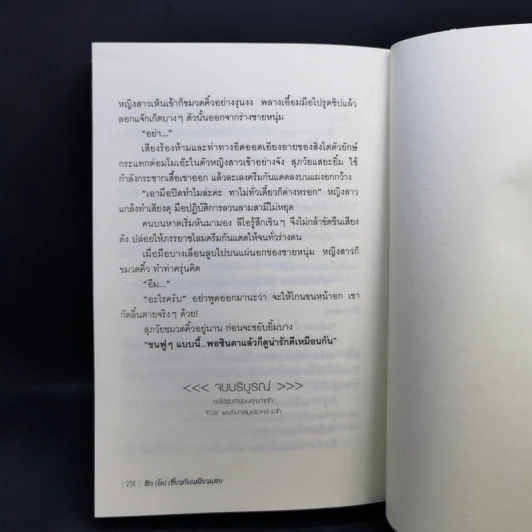 หญิงสาวเห็นเข้าก็ขมวดคิ้วอย่างงุนงง พลางเอื้อมมือไปรูดซิปแล้ว
ลอกแจ๊กเก็ตบางๆ ตัวนั้นออกจากร่างชายหนุ่ม
“อย่า...”
เสียงร้องห้ามและท่าทางอิดออดเอียงอายของสิงโตตัวยักษ์
กระแทกต่อมโมเอ๊ะในตัวหญิงสาวเข้าอย่างจัง สุภวัยแสยะยิ้ม ใช้
กำลังกระชากเสื้อเขาออก แล้วละเลงครีมกันแดดลงบนแผงอกกว้าง
“เอามือปิดทำไมล่ะคะ ทาไม่ทั่วเดี๋ยวก็ด่างหรอก” หญิงสาว
แกล้งทำเสียงดุ มือปฏิบัติการลวนลามสามีไม่หยุด
คนบนหาดเริ่มหันมามอง ลีโอรู้สึกเขินๆ จึงไม่กล้าขัดขืนเสียง
ดัง ปล่อยให้ภรรยาชโลมครีมกันแดดให้จนทั่วร่างตน
เมื่อมือบางเลื่อนลูบไปบนแผ่นอกของชายหนุ่ม หญิงสาวก็
ขมวดคิ้ว ทำท่าครุ่นคิด
“อืม...”
“อะไรครับ” อย่าพูดออกมานะว่า จะให้โกนขนหน้าอก เขา
กัดลิ้นตายจริงๆ ด้วย!
สุภวัยขมวดคิ้วอยู่นาน ก่อนจะขยับยิ้มบาง
“ขนฟูๆ แบบนี้...พอชินตาแล้วก็ดูน่ารักดีเหมือนกัน”
<<< จบบริบูรณ์ >>>
| 218 |